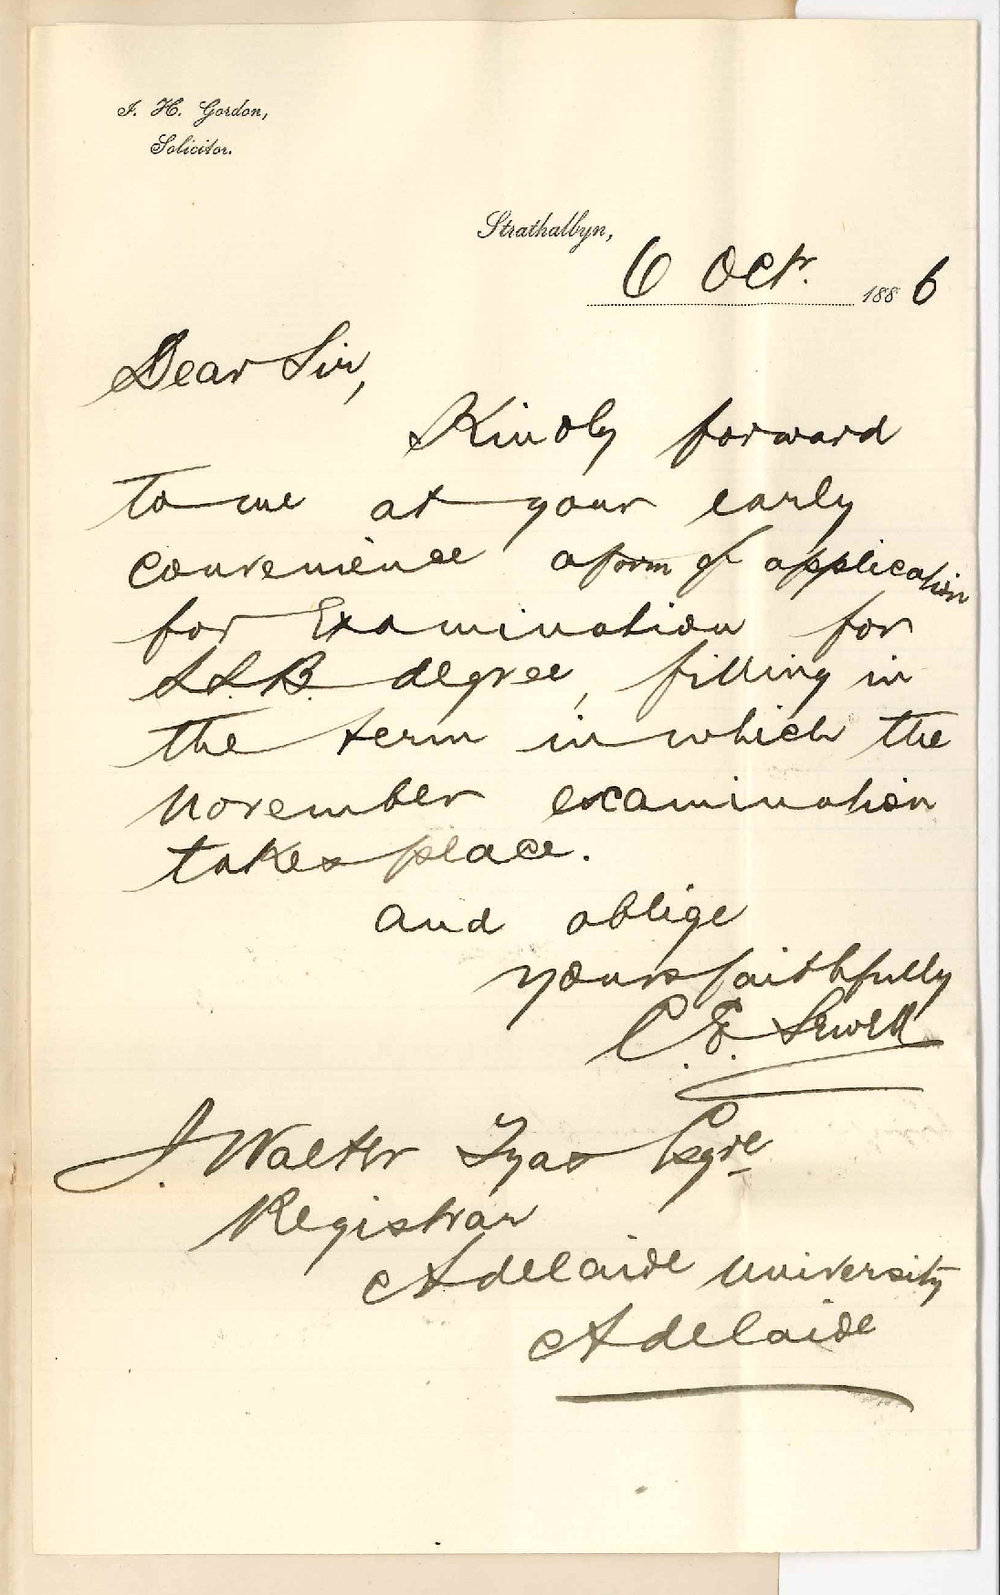 J. H. Gordon,
Solicitor.
Strathalbyn,
6 Octr. 1886
Dear Sir,
Kindly forward
to me at your early
convenience a form of application
for Examination for
LL.B. degree, filling in
the term in which the
November examination
takes place.
and oblige
yours faithfully
C. E. Sewell
J. Walter Tyas Esqre
Registrar
Adelaide University
Adelaide